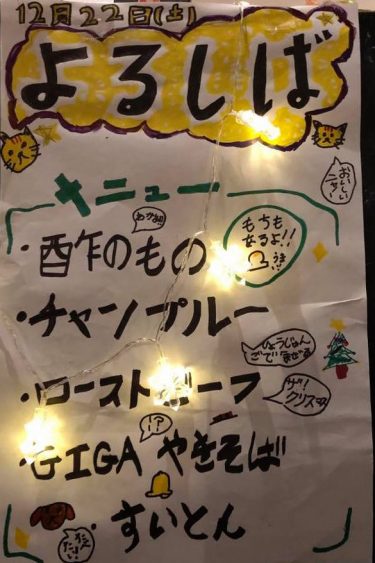 12月22日(土)
よるしば
おいしいニャ〜
メニュー
わかめ
・酢のもの
もちも
あるよ!!
・チャンプルー
ひょうじゅん
ごでまぜる
・ローストビーフ
ザ!
クリスマス
!?
・GIGA やきそば
・すいとん